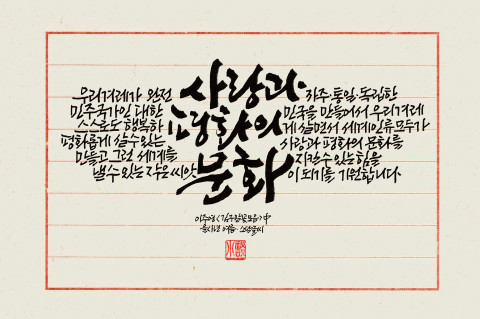 사랑과
평화의
문화
우리겨레가 완전 자주·통일·독립한
민주국가인 대한민국을 만들어서 우리겨레
스스로도 행복하게 살면서 세계인류모두가
평화롭게 살수있는 사랑과 평화의 문화를
만들고 그런 세계를 지킬수있는 힘을
낼수있는 작은 씨앗이 되기를 기원합니다
이주영 <김구말꽃모음>中
여름